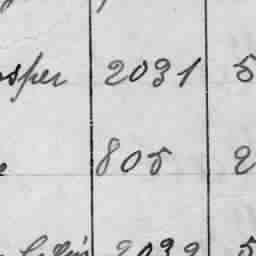 osper 2031 5
805 2
2032 5